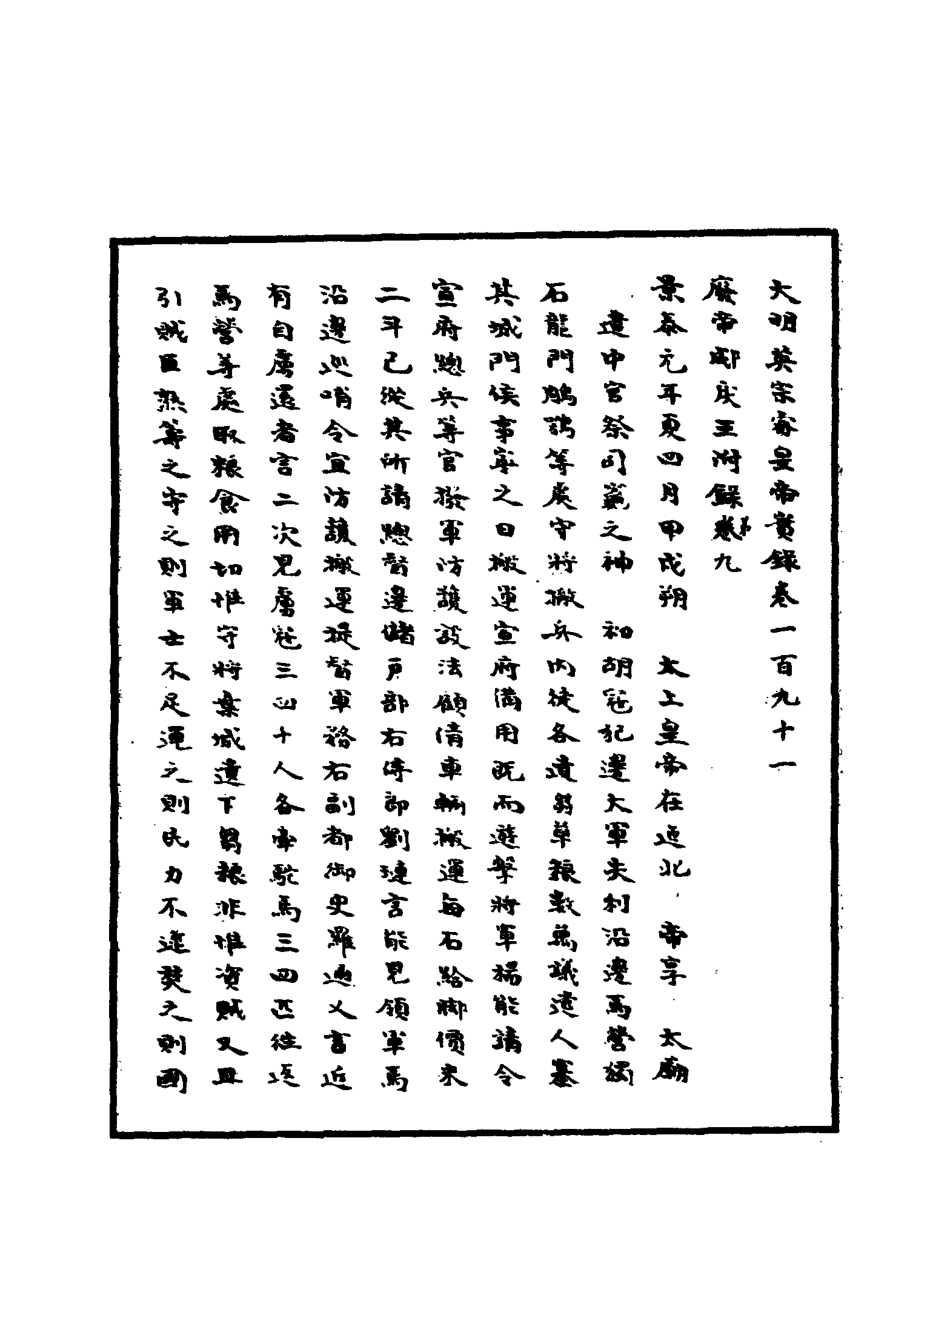 大明英宗睿皇帝實錄卷一百九十一
廢帝郕戾王附錄卷第九
景泰元年夏四月甲戌朔　太上皇帝在迤北　帝享　太廟
遣中官祭司竈之神　初胡寇犯邊大軍失利沿邊馬營獨
石龍門鵰鶚等處守將撤兵內徙各遺芻草糧數萬議遣人塞
其城門俟事寧之日搬運宣府備用既而遊擊將軍楊能請令
宣府總兵等官撥軍防護設法顧倩車輛搬運每石給腳價米
二斗已從其所請總督邊儲戶部右侍郎劉璉言能見領軍馬
沿邊巡哨令宜防護搬運提督軍務右副都御史羅通又言近
有自虜還者言二次見虜寇三四十人各牽駝馬三四匹往返
馬營等處取糧食用切惟守將棄城遺下芻糧非惟資賊又且
引賊臣熟籌之守之則軍士不足運之則民力不逮焚之則國